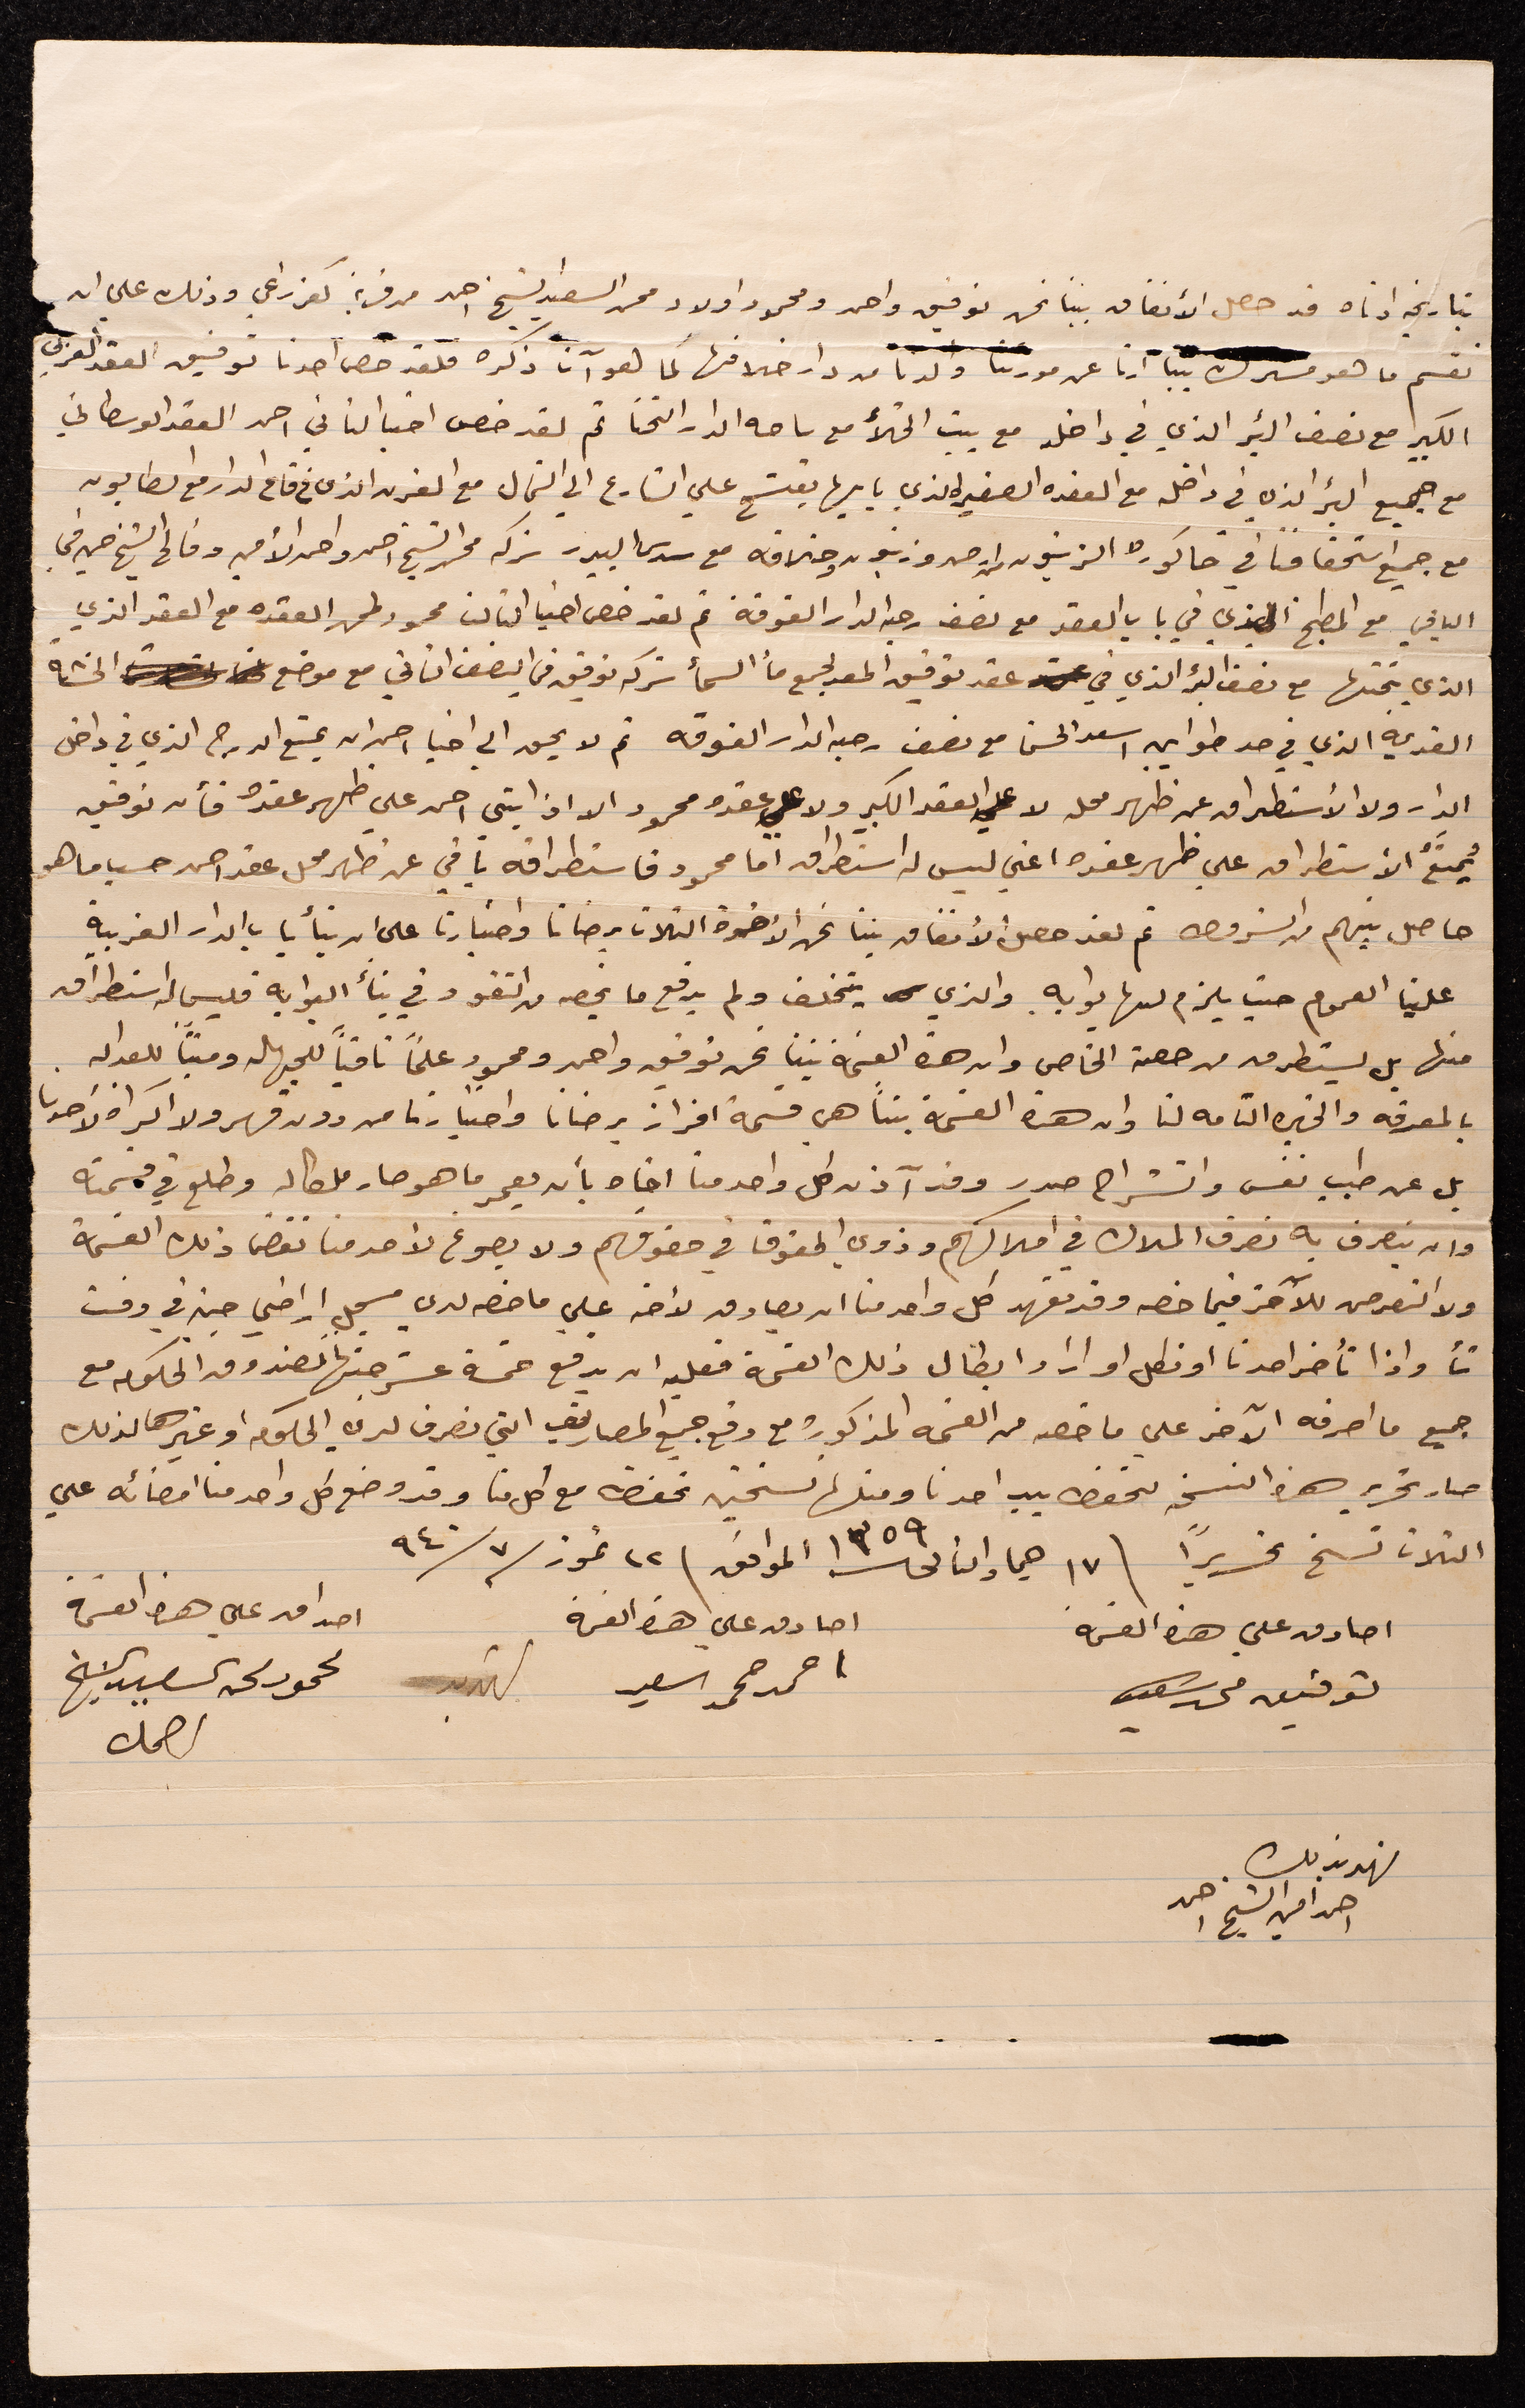 بتاريخه ادناه قد حصل الأتفاق بيننا نحن توفيق واحمد ومحمود اولاد محمد السعيد الشيخ احمد من قرية كفرراعي وذلك على ان
نقسم ما هو مشترك بيننا آرثا عن مورثنا ولدنا من دار خلافها كما هو آت ذكره فلقد خص احدنا توفيق العقد الغربي
الكبير مع نصف البئر الذي في داخله مع بيت الخلأ مع ساحه الدار التحتا ثم لقد خص اخينا الثاني احمد العقد الوسطاني
مع جميع البئر الذي في داخله مع العقده الصغيره الذي بابها يفتح على الشارع الى الشمال مع الفرن الذي في قاع الدار مع الطابون
مع جميع استحقاقنا في حاكورة الزيتون ارض وزيتون وخلافه مع سدس البيدر شركه محمد الشيخ احمد واحمد الأمين وفالح الشيخ حسن في
الباقي مع المطبخ الذي في باب العقد مع نصف رحبه الدار الفوقة ثم لقد خص اخينا الثالث محمود ظهر العقده مع العقد الذي
الذي تحتها مع نصف البئر الذي في عقد توفيق المعد لجمع مأ السمأ شركه توفيق في النصف الثاني مع موضع الخشة
القديمة الذي في حد طوابين اسعد الحسن مع نصف رحبه الدار الفوقه ثم لا يحق الى اخينا احمد ان يمنع الدرج الذي في داخل
الدار ولا الأستطراق عن ظهر محله لا على العقد الكبير ولا على عقده محمود الا اذا ابتنى احمد على ظهر عقده فأن توفيق
يُمنَعُ الأستطراق على ظهر عقده اعني ليس له استطراق أمّا محمود فاستطراقه باقي عن ظهر محل عقد احمد حسب ما هو
حاصل بينهم من الشروط ثم لقد حصل الأتفاق بيننا نحن الأخوة الثلاث برضانا واختيارنا على ان بنأ باب الدار الغربية
علينا العموم حيث يلزم لها بوابه والذي يتخلف ولم يدفع ما يخصه من النقود في بنأ البوابة فليس له استطراق
منها بل يستطرق من حصته الخاص وان هذه القسمة بيننا نحن توفيق واحمد ومحمود علمًا نافيًا للجهاله ومثبتًا للعداله
بالمعرفه والخبره التامه لنا وان هذه القسمة بيننا هي قسمة افراز برضانا واختيارنا من دون قهر ولا اكراه لأحدنا
بل عن طيب نفس وانشراح صدر وقد آذن كل واحد منا اخاه بأن يعمر ما هو صار ملكا له وطلع في قسمته
وان يتصرف به تصرف الملاك في املاكهم وذوي الحقوق في حقوقهم ولا يصوغ لأحد منا نقض ذلك القسمة
ولا التعرض للآخر فيما خصه وقد تعهد كل واحد منا ان يصادق لأخه على ما خصه لدى مسجل اراضي جنين في وقت
شأ واذا تأخر احدنا او نكل او اراد ابطال ذلك القسمة فعليه ان يدفع خمسة عشر جنيهًا لصندوق الحكومه مع
جميع ما اصرفه الآخر على ما خصه من القسمه المذكوره مع دفع جميع المصاريف التي تصرف لدى الحكومه او غيرها لذلك
صار تحرير هذه النسخه لتحفظ بيد احدنا ومثلها نسختين تحفظ مع كل منا وقد وضع كل واحد منا امضائه على
الثلاث نسخ تحريرًا \ ١٧ جماد الثاني سنة ١٣٥٩ الموافق \ ٢٢ تموز /٧/ ٩٤٠
اصادق على هذه القسمة
توفيق محمد سعيد
اصادق على هذه القسمة
احمد محمد السعيد
اصداق على هذه القسمة
محمود محمد السعيد الشيخ
احمد
شهد بذلك
احمد امين الشيخ احمد